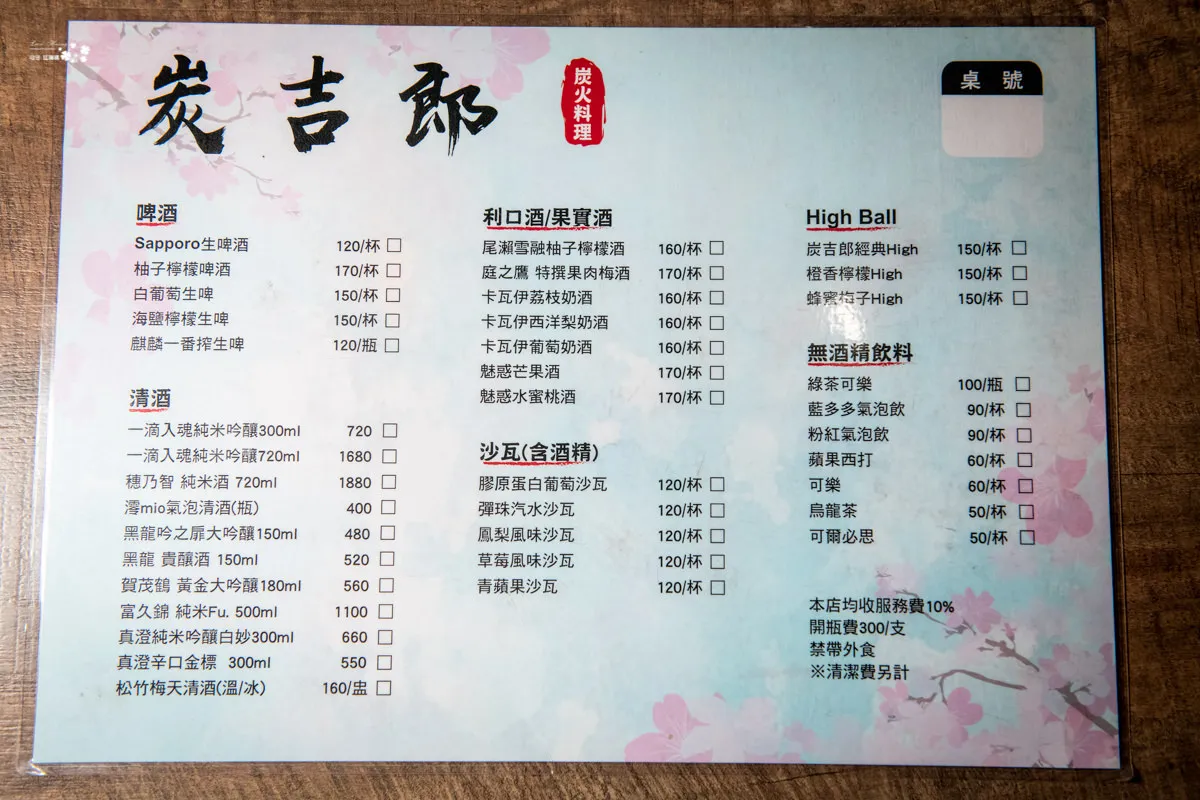 炭吉郎
炭火料理
桌號
啤酒
Sapporo生啤酒 120/杯 □
柚子檸檬啤酒 170/杯 □
白葡萄生啤 150/杯 □
海鹽檸檬生啤 150/杯 □
麒麟一番搾生啤 120/瓶 □
清酒
一滴入魂純米吟釀300ml 720 □
一滴入魂純米吟釀720ml 1680 □
穗乃智 純米酒 720ml 1880 □
澪mio氣泡清酒(瓶) 400 □
黑龍吟之扉大吟釀150ml 480 □
黑龍 貴釀酒 150ml 520 □
賀茂鶴 黃金大吟釀180ml 560 □
富久錦 純米Fu. 500ml 1100 □
真澄純米吟釀白妙300ml 660 □
真澄辛口金標 300ml 550 □
松竹梅天清酒(溫/冰) 160/盅 □
利口酒/果實酒
尾瀨雪融柚子檸檬酒 160/杯 □
庭之鷹 特撰果肉梅酒 170/杯 □
卡瓦伊荔枝奶酒 160/杯 □
卡瓦伊西洋梨奶酒 160/杯 □
卡瓦伊葡萄奶酒 160/杯 □
魅惑芒果酒 170/杯 □
魅惑水蜜桃酒 170/杯 □
沙瓦(含酒精)
膠原蛋白葡萄沙瓦 120/杯 □
彈珠汽水沙瓦 120/杯 □
鳳梨風味沙瓦 120/杯 □
草莓風味沙瓦 120/杯 □
青蘋果沙瓦 120/杯 □
High Ball
炭吉郎經典High 150/杯 □
橙香檸檬High 150/杯 □
蜂蜜梅子High 150/杯 □
無酒精飲料
綠茶可樂 100/瓶 □
藍多多氣泡飲 90/杯 □
粉紅氣泡飲 90/杯 □
蘋果西打 60/杯 □
可樂 60/杯 □
烏龍茶 50/杯 □
可爾必思 50/杯 □
本店均收服務費10%
開瓶費300/支
禁帶外食
※清潔費另計